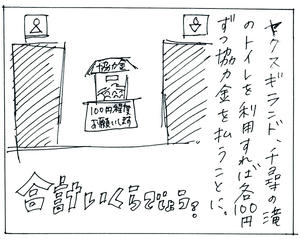 ヤクスギランド、千尋の滝
のトイレを利用すれば各100円
ずつ協力金を払うことに。
協力金
100円程度
お願いします
合計いくらでしょう?